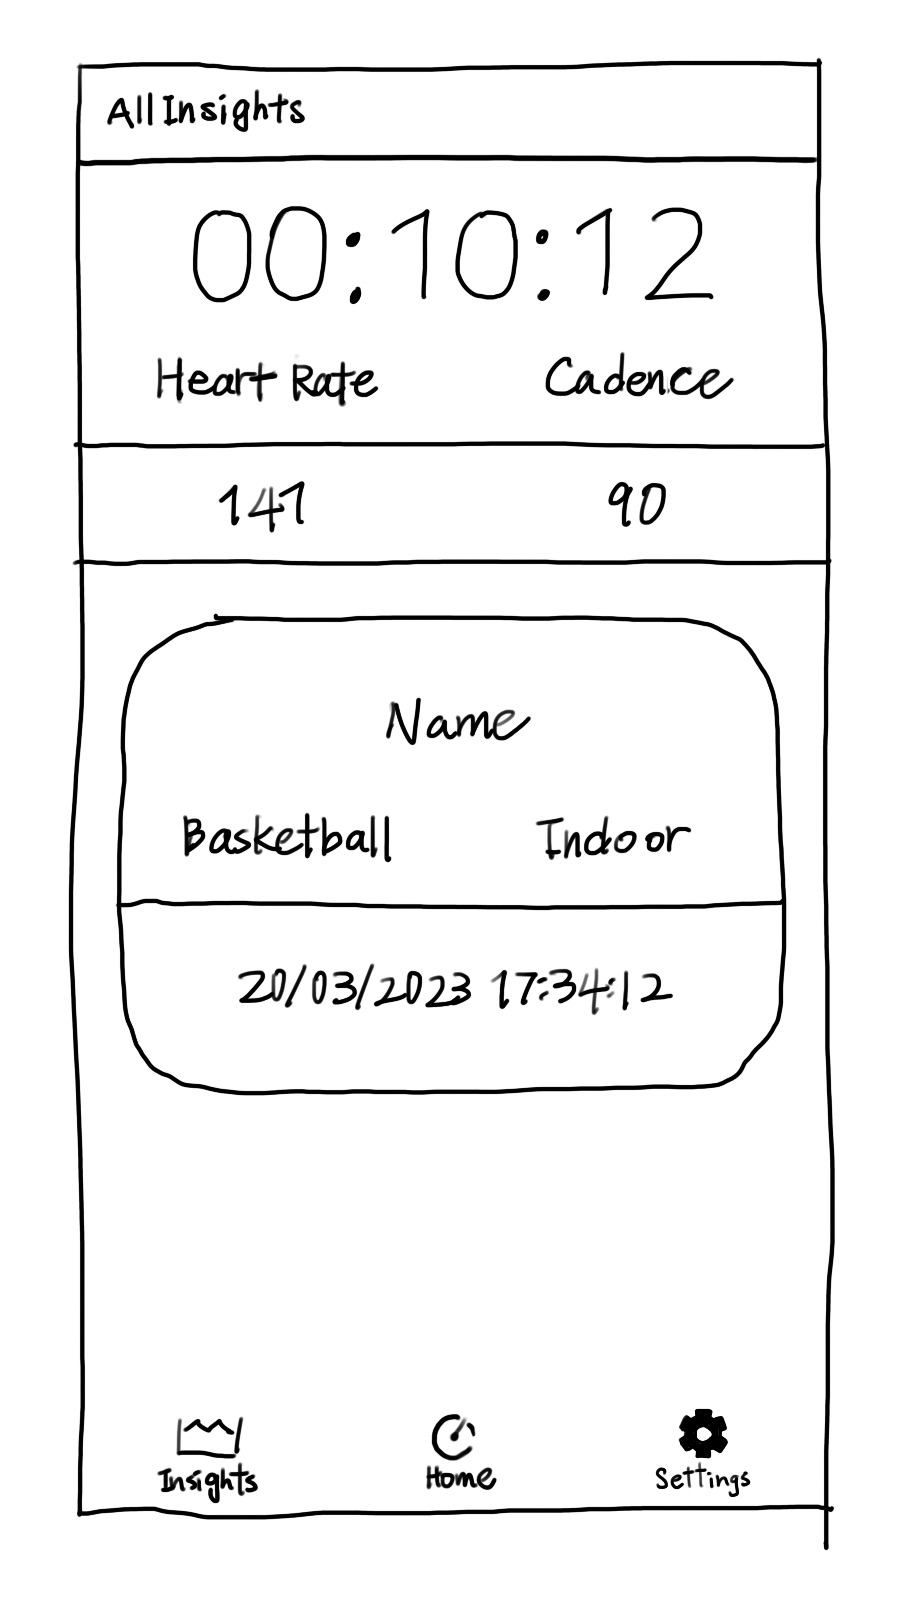 All Insights
00:10:12
Heart Rate Cadence
141 90
Name
Basketball Indoor
20/03/2023 17:34:12
Insights Home Settings